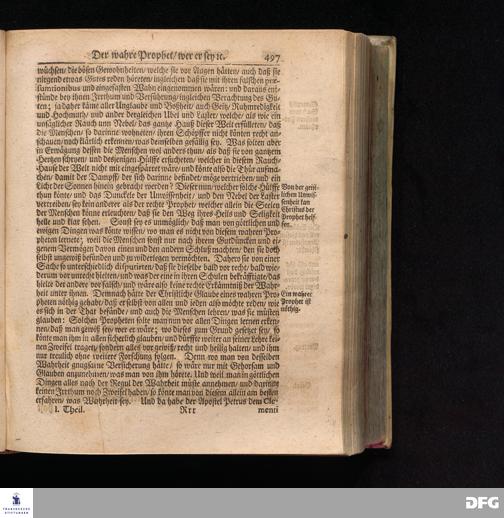 Der wahre Prophet/ wer er sey ꝛc. 497
wüchsen/ die bösen Gewohnheiten/ welche sie vor Augen hätten/ auch daß sie
nirgend etwas Gutes reden höreten/ ingleichen daß sie mit ihren falschen præ-
sumtionibus und eingefasten Wahn eingenommen wären: und daraus ent-
stünde bey ihnen Irrthum und Verführung/ ingleichen Verachtung des Gu-
ten; ja daher käme aller Unglaube und Boßheit/ auch Geitz/ Ruhmredigkeit
und Hochmuth/ und ander dergleichen Ubel und Laster/ welche/ als wie ein
unsäglicher Rauch und Nebel/ das gantze Hauß dieser Welt erfülleten/ daß
die Menschen/ so darinne wohneten/ ihren Schöpffer nicht könten recht an-
schauen/ noch klärlich erkennen/ was demselben gefällig sey. Was solten aber
in Erwägung dessen die Menschen wol anders thun/ als daß sie von gantzem
Hertzen schryen/ und desjenigen Hülffe ersuchten/ welcher in diesem Rauch-
Hause der Welt nicht mit eingesperret wäre/ und könte also die Thür aufma-
chen/ damit der Dampff/ der sich darinne befindet/ möge vertrieben/ und ein
Licht der Sonnen hinein gebracht werden? Dieser nun/ welcher solche Hülffe
thun könte/ und das Dunckele der Unwissenheit/ und den Nebel der Laster
vertreiben/ sey kein anderer als der rechte Prophet/ welcher allein die Seelen
der Menschen könne erleuchten/ daß sie den Weg ihres Heils und Seligkeit
helle und klar sehen. Sonst sey es unmöglich/ daß man von göttlichen und
ewigen Dingen was könte wissen/ wo man es nicht von diesem wahren Pro-
pheten lernete; weil die Menschen sonst nur nach ihrem Gutdüncken und ei-
genem Vermögen davon einen und den andern Schluß machten/ den sie doch
selbst ungewiß befunden und zu widerlegen vermöchten. Dahero sie von einer
Sache so unterschiedlich disputireten/ daß sie dieselbe bald vor recht/ bald wie-
derum vor unrecht hielten/ und was der eine in ihren Schulen bekräfftigte/ das
hielte der andre vor falsch/ und wäre also keine rechte Erkäntniß der Wahr-
heit unter ihnen. Demnach hätte der Christliche Glaube eines wahren Pro-
pheten nöthig gehabt/ daß er selbst von allen und jeden also möchte reden/ wie
es sich in der That befände/ und auch die Menschen lehren/ was sie müsten
glauben: Solchen Propheten solte man nun vor allen Dingen lernen erken-
nen/ daß man gewiß sey/ wer er wäre; wo dieses zum Grund gesetzet sey/ so
könte man ihm in allen sicherlich glauben/ und dürffte weiter an seiner Lehre kei-
nen Zweifel tragen/ sondern alles vor gewiß/ recht und heilig halten/ und ihm
nur treulich ohne weitere Forschung folgen. Denn wo man von desselben
Wahrheit gnugsame Versicherung hätte/ so wäre nur mit Gehorsam und
Glauben anzunehmen/ was man von ihm hörete. Und weil man in göttlichen
Dingen alles nach der Regul der Wahrheit müste annehmen/ und darinne
keinen Irrthum noch Zweifel haben/ so könte man von diesem allein am besten
erfahren/ was Wahrheit sey. Und da habe der Apostel Petrus dem Cle-
I. Theil. Rrr menti
Von der geist-
lichen Unwis-
senheit kan
Christus der
Prophet helf-
fen.
Ein wahrer
Prophet ist
nöthig.
FRANCKESCHE
STIFTUNGEN
DFG